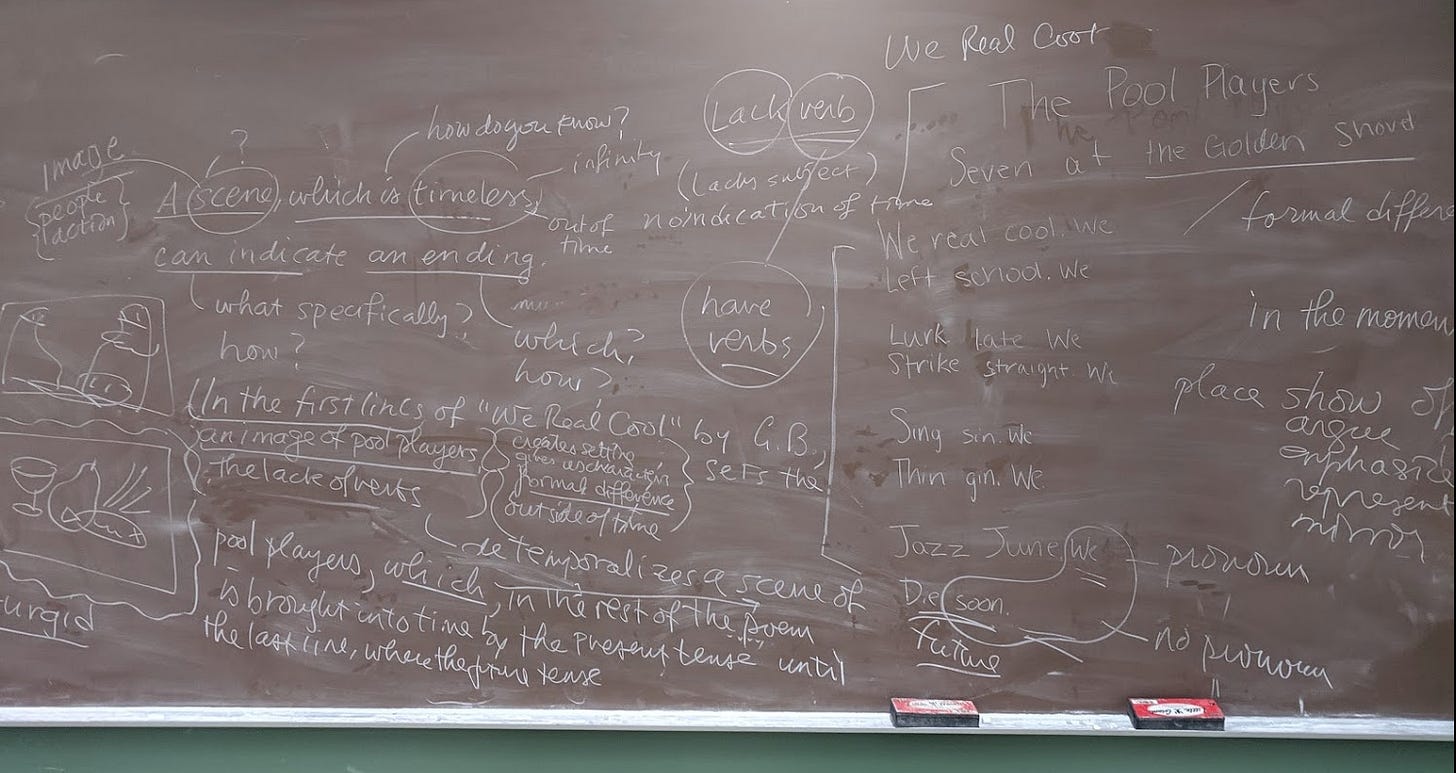 We Real Cool
The Pool Players
Seven at the Golden Shovel
We real cool. We
Left school. We
Lurk late We
Strike straight. We
Sing sin. We
Thin gin. We
Jazz June. We
Die soon.
Future
pronoun
no pronoun
formal differ
in the momen
place show of
argue
emphasize
represent
mirror
Lack verb
(Lacks subject)
no indication of time
have
verbs
how do you know?
infinity
?
image
{people}
{action}
A scene, which is timeless,
out of
time
can indicate an ending.
what specifically?
how?
which?
how?
In the first lines of "We Real Cool" by G.B.,
an image of pool players
The lack of verbs
creates setting
gives us characters
formal difference
outside of time
sets the
detemporalizes a scene of
pool players, which, in the rest of the poem
is brought into time by the present tense until
the last line, where the future tense
urgid